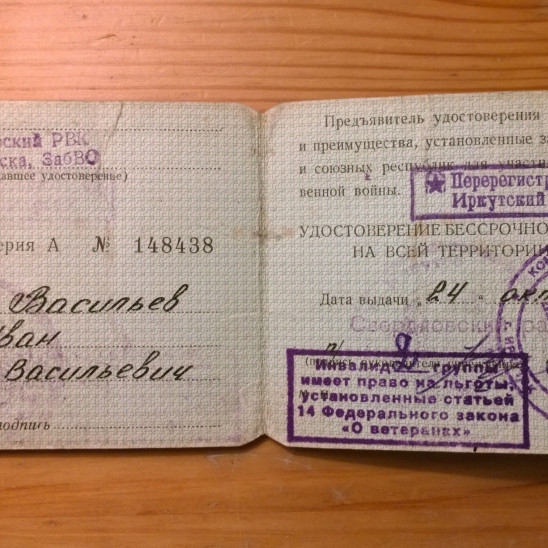 рский РВК
ска, ЗабВО
давшее удостоверение)
ерия А № 148438
Васильев
Иван
Васильевич
подпись
Предъявитель удостоверения
и преимущества, установленные за
и союзных республик для участн
венной войны.
Перерегистр
Иркутский
УДОСТОВЕРЕНИЕ БЕССРОЧНО
НА ВСЕЙ ТЕРРИТОРИ
Дата выдачи „24" окт
Свердловский ра
Инвалид 2 группы
имеет право на льготы,
установленные статьей
14 Федерального закона
«О ветеранах»